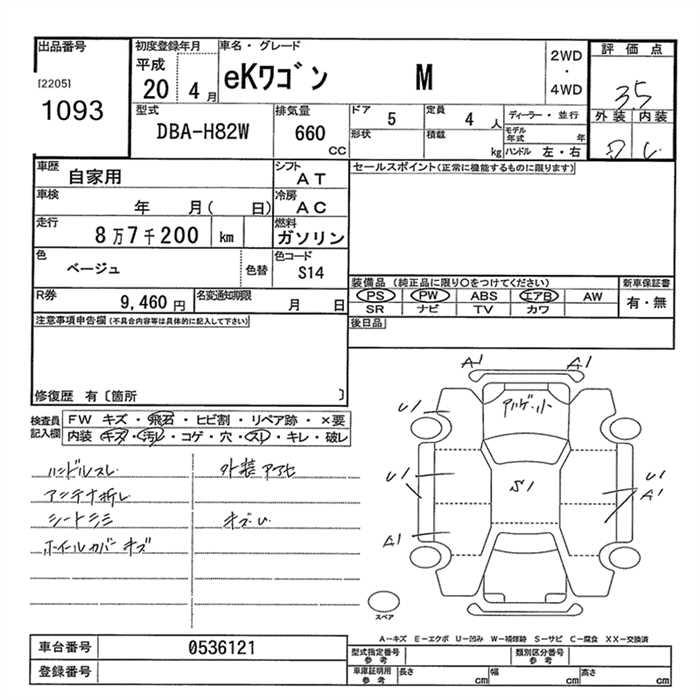 出品番号
[2205]
1093
初度登録年月
平成
20 4 月
車名・グレード
eKワゴン M
2WD
・
4WD
評価点
3.5
外装 内装
型式
DBA-H82W
排気量
660
CC
ドア
5
定員
4 人
形状
積載
kg
ディーラー・並行
モデル
年式 年
ハンドル 左・右
車歴
自家用
シフト
AT
車検
年 月( 日)
冷房
AC
走行
8万7千200 km
燃料
ガソリン
色
ベージュ
色替
色コード
S14
R券
9,460 円
名変通知期限
月 日
セールスポイント(正常に機能するものに限ります)
装備品 (純正品に限り○をつけてください)
PS PW ABS エアB AW
SR ナビ TV カワ
新車保証書
有・無
後日品
注意事項申告欄(不具合内容等は具体的に記入して下さい)
修復歴 有〔箇所 〕
検査員
記入欄
FW キズ・飛石・ヒビ割・リペア跡・×要
内装 キズ・汚レ・コゲ・穴・スレ・キレ・破レ
ハンドルスレ
アンテナ折レ
シートシミ
ホイールカバーキズ
キズU
A1
A1
U1
U1
A1
S1
U1
A1
スペア
A－キズ E－エクボ U－凹み W－補修跡 S－サビ C－腐食 XX－交換済
車台番号
0536121
登録番号
型式指定番号
参考
類別区分番号
参考
車庫証明用
参考
長さ cm
幅 cm
高さ cm